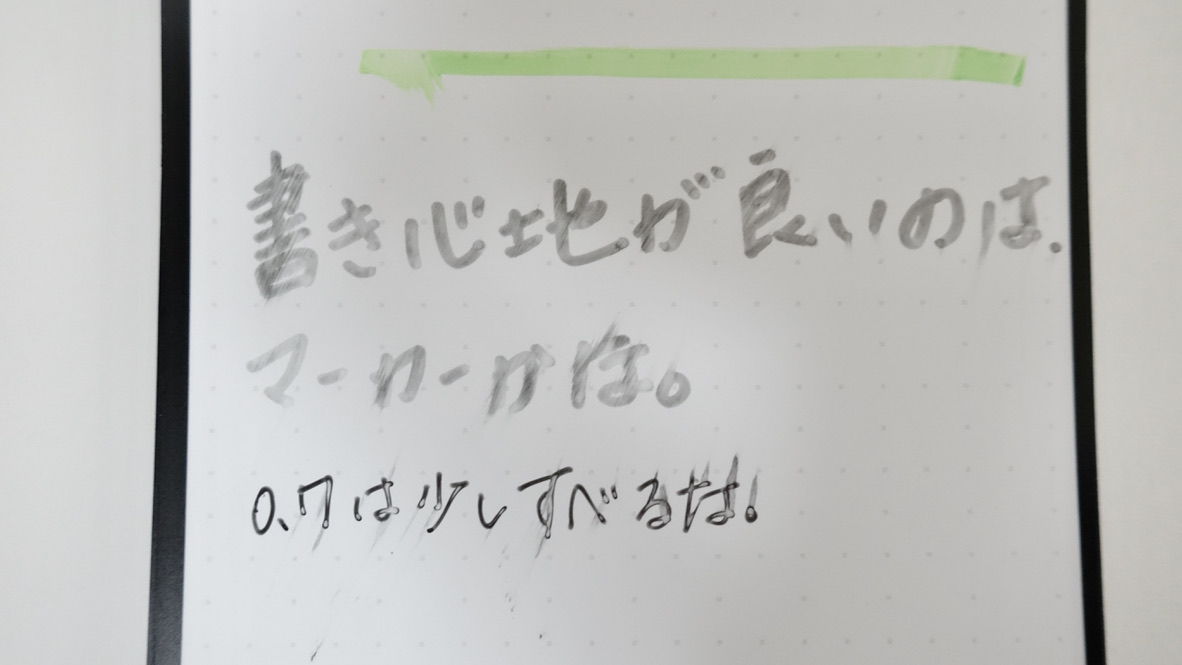 書き心地が良いのは、
マーカーかな。
0.7は少しすべるな!